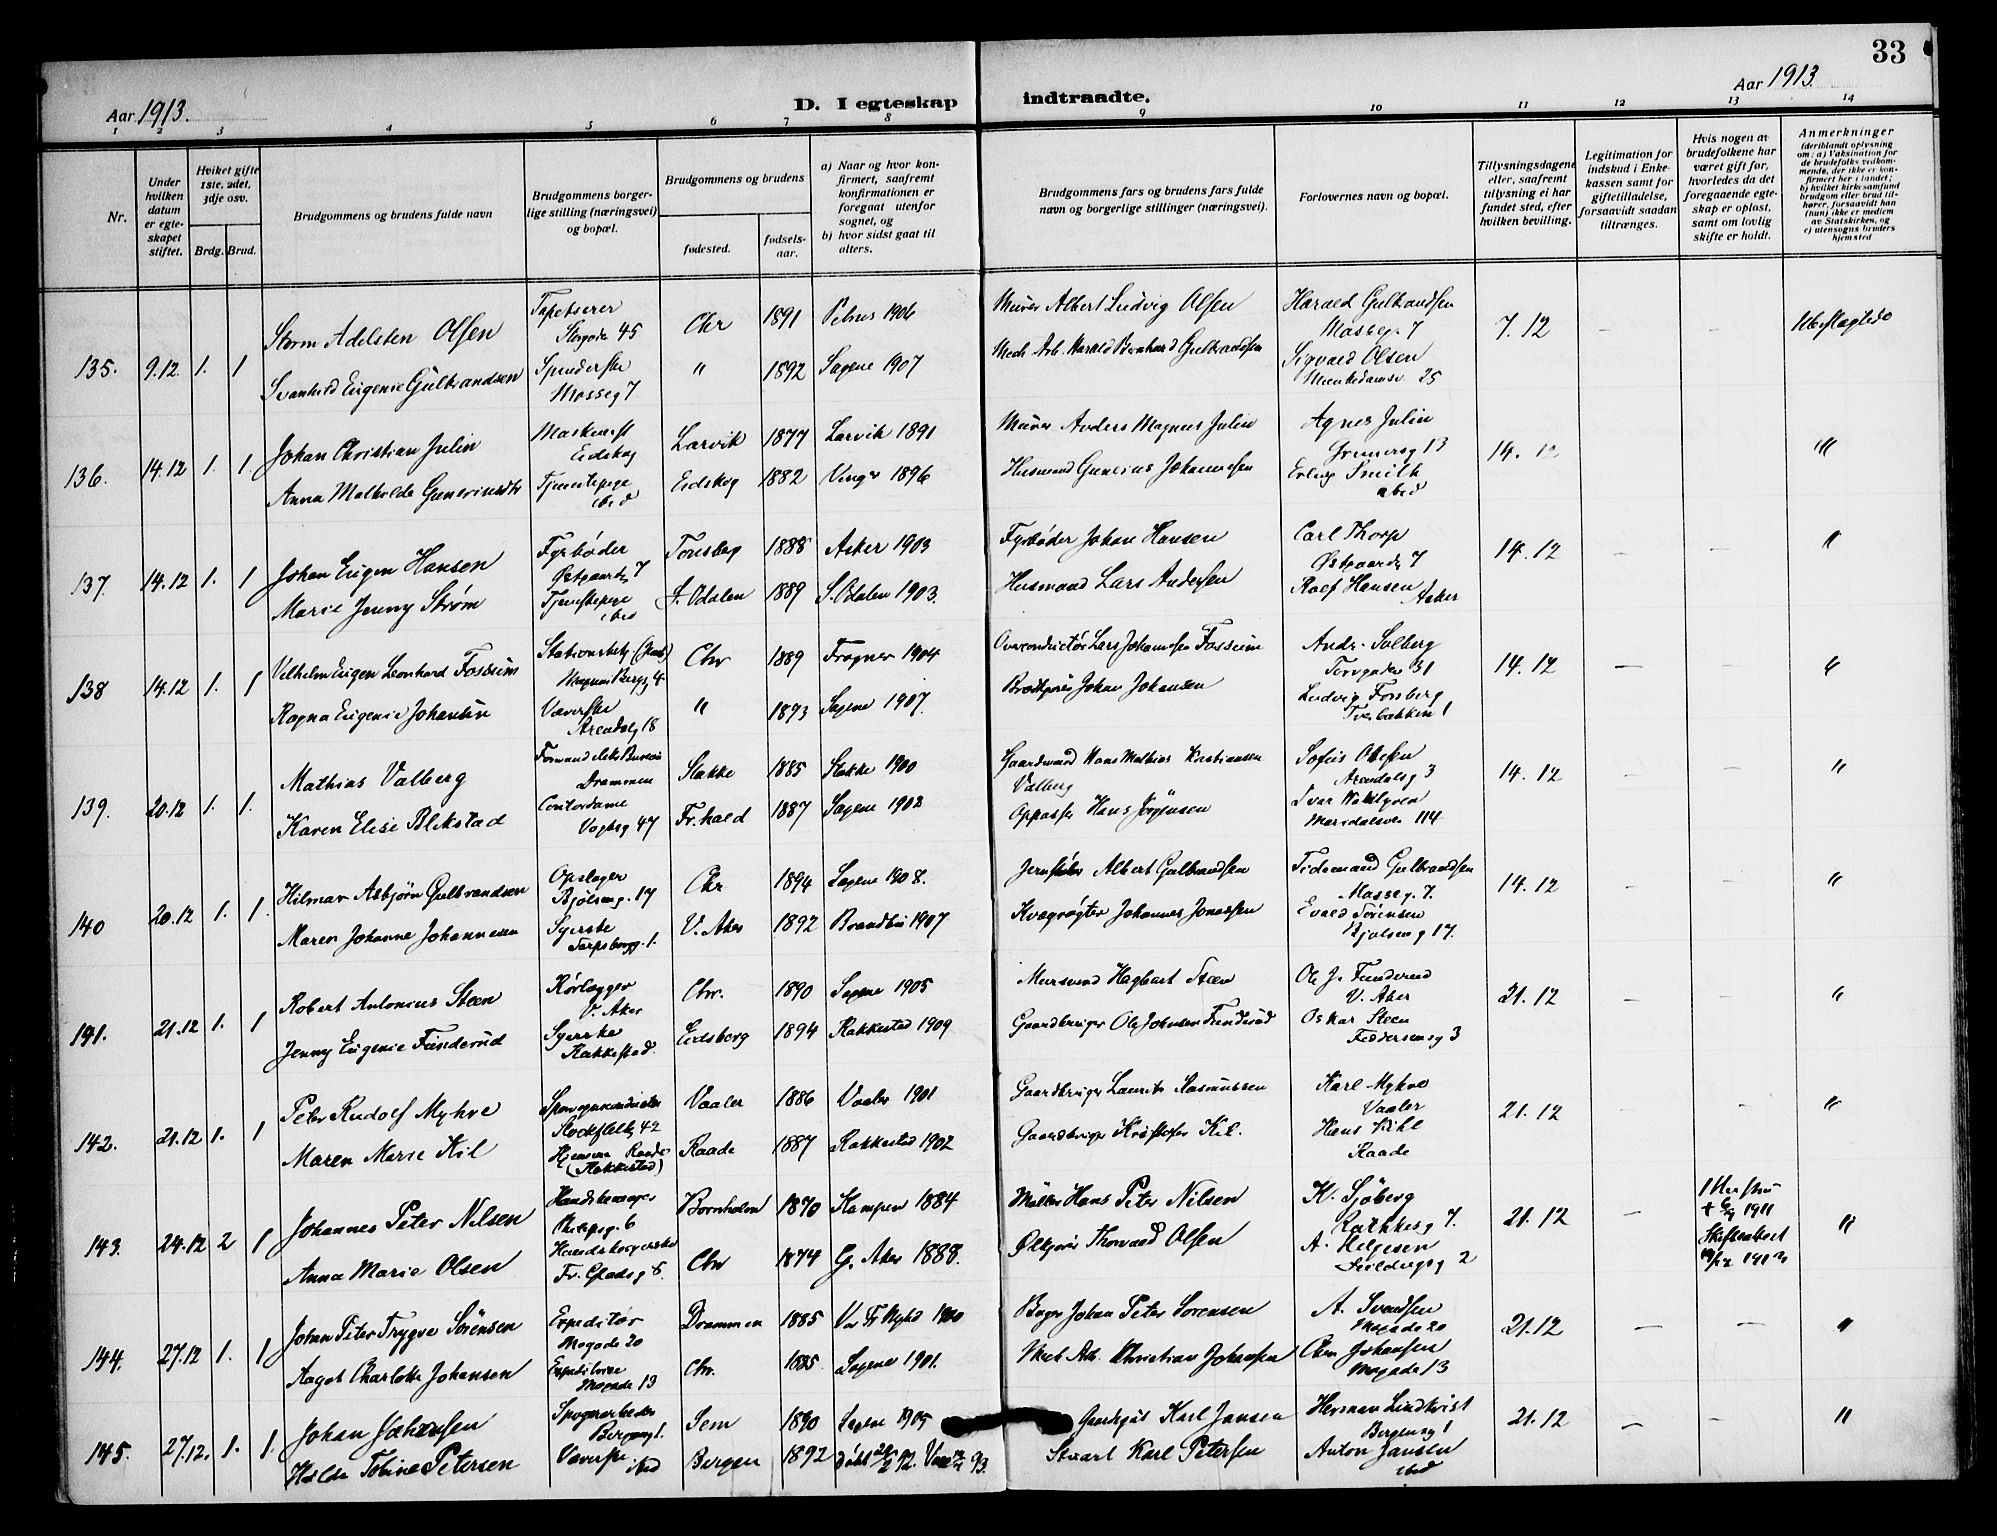 33
Aar 1913.
D. I egteskap indtraadte.
Aar 1913.
1 2 3 4 5 6 7 8 9 10 11 12 13 14
Nr.
Under hvilken datum er egte-skapet stiftet.
Hvilket gifte 1ste, 2det, 3dje osv.
Brdg. Brud.
Brudgommens og brudens fulde navn
Brudgommens borger-lige stilling (næringsvei) og bopæl.
Brudgommens og brudens
fødested.
fødsels-aar.
a) Naar og hvor kon-firmert, saafremt konfirmationen er foregaat utenfor sognet, og
b) hvor sidst gaat til alters.
Brudgommens fars og brudens fars fulde navn og borgerlige stillinger (næringsvei).
Forlovernes navn og bopæl.
Tillysningsdagene eller, saafremt tillysning ei har fundet sted, efter hvilken bevilling.
Legitimation for indskud i Enke-kassen samt for giftetilladelse, forsaavidt saadan tiltrænges.
Hvis nogen av brudefolkene har været gift før, hvorledes da det foregaaende egte-skap er opløst, samt om lovlig skifte er holdt.
Anmerkninger
(deriblandt oplysning om: a) Vaksination for de brudefolks vedkom-mende, der ikke er kon-firmert her i landet; b) hvilket kirkesamfund brudgom eller brud til-hører, forsaavidt han (hun) ikke er medlem av Statskirken, og c) utensogns bruders hjemsted
135. 9.12 1. 1 Storm Adelsten Olsen Tapetserer Storgade 45 Chr 1891 Petrus 1906 Murer Albert Ludvig Olsen Harald Gulbrandsen Mosseg. 7 7.12 – – Ubeslægtede
Svanhild Eugenie Gulbrandsen Spinderske Mosseg 7 " 1892 Sagene 1907 Mek. Arb. Harald Bernhard Gulbrandsen Sigvald Olsen Munkedamsv 25
136. 14.12 1. 1. Johan Christian Julin Eidskog Larvik 1877 Larvik 1891 Murer Anders Magnus Julin Agnes Julin Grünersg 13 14. 12 "
Anna Mathilde Gunerius Tjenestepige ibid Eidskog 1882 Vinger 1896 Husmand Gunerius Johannesen Erling Smith ibid
137. 14.12 1. 1 Johan Eugen Hansen Fyrbøder Østgaardsg 7 Tonsberg 1888 Asker 1903 Fyrbøder Johan Hansen Carl Thorp Østgaardsg 7 14.12 – – "
Marie Jenny Strøm Tjenestepige ibid S. Odalen 1889 S. Odalen 1903. Husmand Lars Andersen Rolf Hansen Asker
138 14.12 1. 1 Vilhelm Eugen Leonhard Fossum Magnus Bergsg 4 Chr 1889 Frogner 1904 Overconductør Lars Johannesen Fossum Andr. Solberg Torvgaden 31 14.12 – – "
Ragna Eugenie Johansen Væverske Arendalsg 18 " 1893 Sagene 1907. Johan Johansen Ludvig Forsberg Tverbakken 1
139. 20.12 1. 1. Mathias Valberg Drammen Slakke 1885 Slakke 1900 Gaardmand Hans Mathias Kristiansen Valberg Sofus Olesen Arendalsg 3 14.12 – – "
Karen Elise Blikstad Contordame Vogtsg 47 Fr.hald 1887 Sagene 1902 Oppasser Hans Jørgensen Ivar Wahlgren Maridalsvei 114
140 20.12 1. 1. Hilmar Asbjørn Gulbrandsen Opslager Bjølseng. 17 Chr 1894 Sagene 1908. Albert Gulbrandsen Tidemand Gulbrandsen Mosseg. 7. 14.12 – – "
Maren Johanne Johannesen Syerske Sarpsborgg. 1. V. Aker 1892 Brandbu 1907 Kvægrøgter Johannes Jonassen Evald Sørensen Bjølseng 17.
141. 21.12 1. 1 Robert Antonius Steen Rørlægger V. Aker Chr. 1890 Sagene 1905 Mursvend Hagbart Steen Ole J. Funderud V. Aker 21.12 – – "
Jenny Eugenie Funderud Syerske Rakkestad. Eidsberg 1894 Rakkestad 1909 Gaardbruger Ole Johnsen Funderud Oskar Steen Feddersensg 3
142. 21.12 1. 1 Peter Rudolf Myhre Stockfleths 42 Vaaler 1886 Vaaler 1901 Gaardbruger Laurits Rasmussen Karl Myhre Vaaler 21.12 – – "
Maren Marie Kil Hjemme Raade (Rakkestad) Raade 1887 Rakkestad 1902 Gaardbruger Kristofer Kil. Hans Kihl Raade
143. 24.12 2 1 Johannes Peter Nilsen Bornholm 1870 Kampen 1884 Møller Hans Peter Nilsen K. Sjöberg Rathkesg 7. 21.12 – 1911 "
Anna Marie Olsen Handskesyerske Chr 1874 G. Aker 1888. Ølkjører Thorvald Olsen A. Helgesen 2 Skifteattest
144. 27.12 1. 1 Johan Peter Trygve Sörensen Expeditør Mogade 20 Drammen 1885 Vor Fr. 1900 Bager Johan Peter Sorensen A. Svendsen Mogade 20 21.12 – – "
Aagot Charlotte Johansen Mogade 13 Chr. 1885 Sagene 1901. Mek Arb. Christian Johansen Chr Johansen Mogade 13
145. 27.12. 1. 1. Johan Johansen Bergensg 1. Sem 1890 Sagene 1905 Karl Jansen Herman Lindkvist Bergensg 1 21.12 – – "
Hilda Tobine Petersen Væverske ibid Bergen 1892 Stuart Karl Petersen Anton Jansen ibid